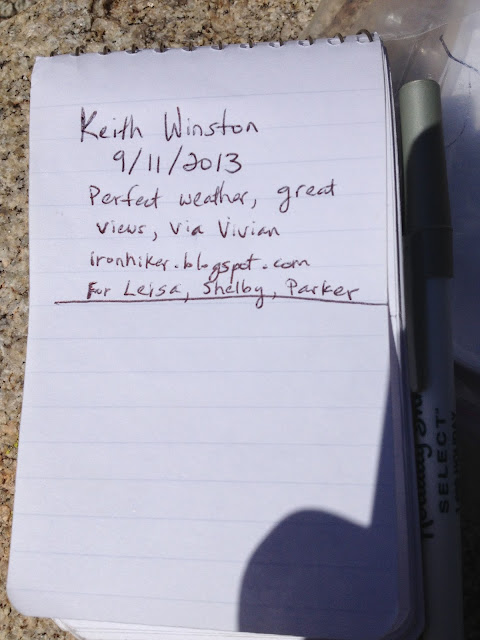 Keith Winston
9/11/2013
Perfect weather, great
views, via Vivian
ironhiker.blogspot.com
For Leisa, Shelby, Parker
SELECT